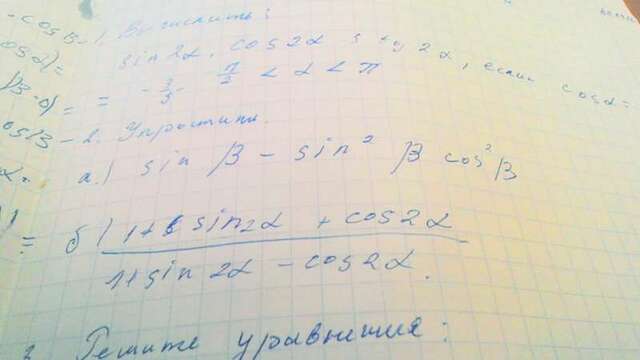 1. Вычислить:
sin2α, cos2α, tg2α, если cosα=
= -3/5 π/2 < α < π
2. Упростить.
а.) sin β - sin² β cos²β
б) 1+ sin2α + cos2α
1+sin2α - cos2α.
Решите уравнения: